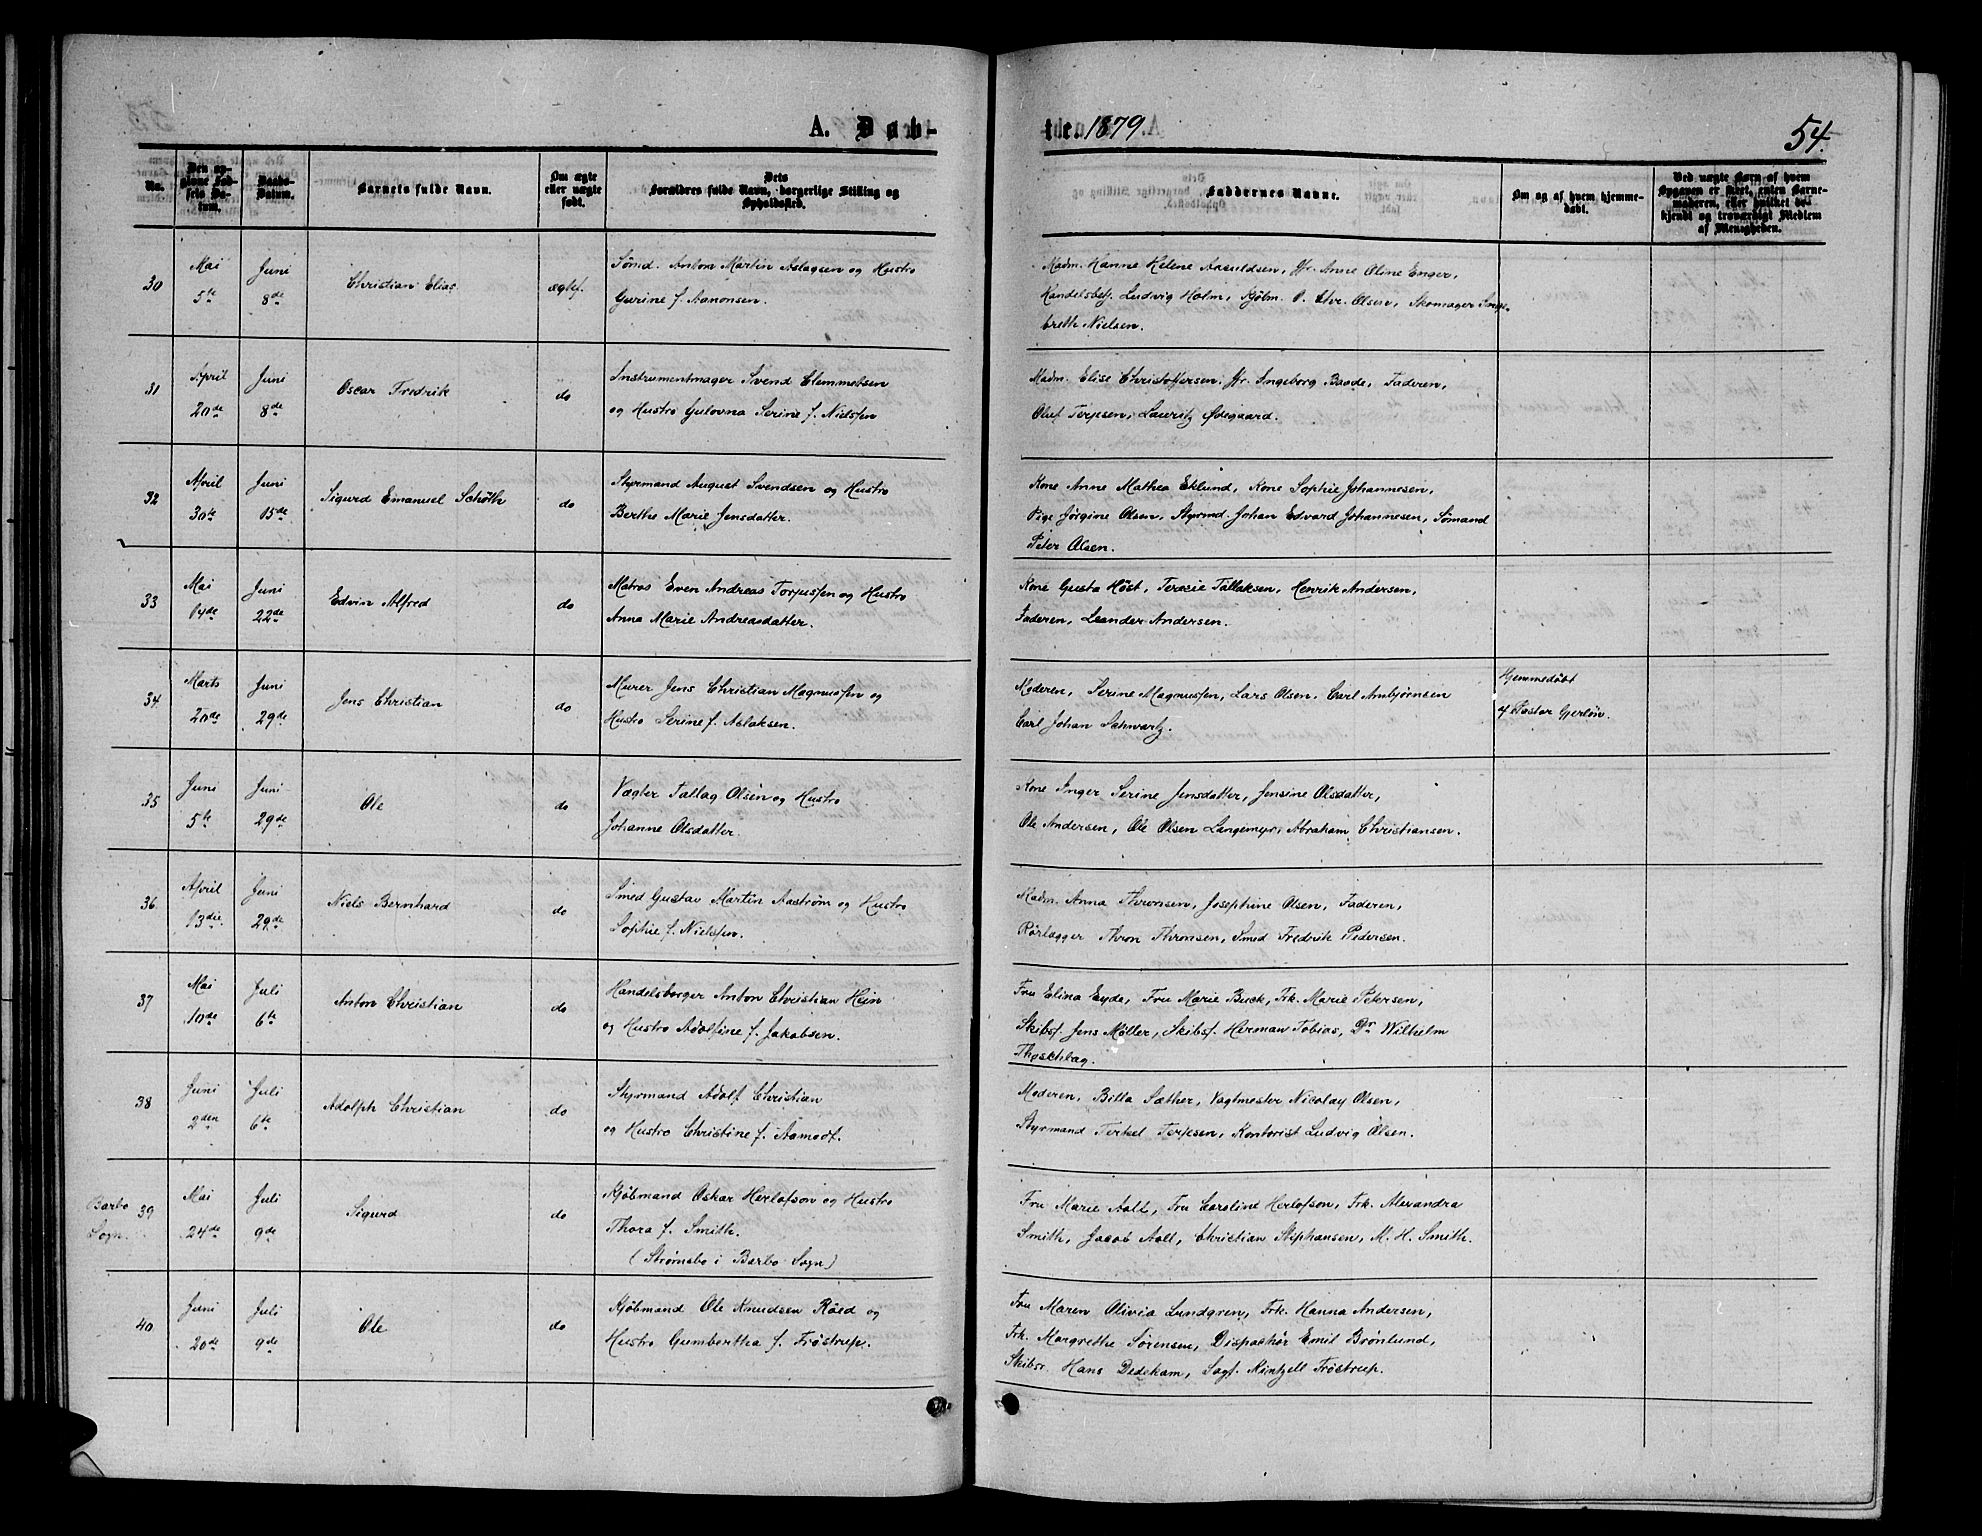 A. Døb-
te. 1879.
54.
No.
Den op-
givne Fød-
sels Da-
tum.
Daabs-
Datum.
Barnets fulde Navn.
Om ægte
eller uægte
født.
Dets
Forældres fulde Navn, borgerlige Stilling og
Opholdssted.
Faddernes Navne.
Om og af hvem hjemme-
døbt.
Ved uægte Børn af hvem
Opgaven er skeet, enten Barne-
moderen, eller hvilket be-
kjendt og troværdigt Medlem
af Menigheden.
30
Mai
5te
Juni
8de
Christian Elias
ægtef.
Sømd. Anton Martin Aslagsen og Hustro
Gurine f. Aanonsen.
Madm. Hanne Helene Aasuldsen, Jfr. Anne Oline Enger,
Handelsbest. Ludvig Holm, Kjøbm. O. Chr. Olsen, Skomager Inge-
breth Nielsen.
31
April
20de
Juni
8de
Oscar Fredrik
do
Instrumentmager Svend Clemmetsen
og Hustro Gulovna Serine f. Nielssen
Madm. Elise Christoffersen, Jfr. Ingeborg Baade, Faderen,
Oluf Terjesen, Lauritz Ødegaard.
32
April
30te
Juni
15de
Sigurd Emanuel Schøtth
do
Styrmand August Svendsen og Hustro
Berthe Marie Jensdatter.
Kone Anne Mathea Eklund, Kone Sophie Johannesen,
Pige Jørgine Olsen, Styrmd. Johan Edvard Johannesen, Sømand
Peter Olsen.
33
Mai
14de
Juni
22de
Edvin Alfred
do
Matros Even Andreas Torjussen og Hustro
Anna Marie Andreasdatter.
Kone Gusta Høst, Terecie Tallaksen, Henrik Andersen,
Faderen, Leander Andersen.
34
Marts
20de
Juni
29de
Jens Christian
do
Murer Jens Christian Magnussen og
Hustro Serine f. Aslaksen.
Moderen, Serine Magnussen, Lars Olsen, Carl Ambjørnsen
Carl Johan Schwartz.
Hjemmedøbt
af Pastor Gjerløw.
35
Juni
5te
Juni
29de
Ole
do
Vægter Tallag Olsen og Hustro
Johanne Olsdatter.
Kone Inger Serine Jensdatter, Jensine Olsdatter,
Ole Andersen, Ole Olsen Langemyr, Abraham Christiansen.
36
April
13die
Juni
29de
Niels Bernhard
do
Smed Gustav Martin Aastrøm og Hustro
Sophie f. Nielssen.
Madm. Anna Thronsen, Josephine Olsen, Faderen,
Rørlægger Thron Thronsen, Smed Fredrik Pedersen.
37
Mai
10de
Juli
6te
Anton Christian
do
Handelsborger Anton Christian Hein
og Hustro Adolfine f. Jakobsen.
Fru Elina Eyde, Fru Marie Buck, Frk. Marie Petersen,
Skibsf. Jens Møller, Skibsf. Herman Tobias, Dr. Wilhelm
Thoschlag.
38
Juni
2den
Juli
6te
Adolph Christian
do
Styrmand Adolf Christian
og Hustro Christine f. Aamodt.
Moderen, Billa Sæther, Vagtmester Nicolay Olsen,
Styrmand Terkel Terjesen, Kontorist Ludvig Olsen.
Barbo
Sogn.
39
Mai
24de
Juli
9de
Sigurd
do
Kjøbmand Oskar Herlofson og Hustro
Thora f. Smith.
(Strømsbo i Barbo Sogn)
Fru Marie Aall, Fru Caroline Herlofson, Frk. Alexandra
Smith, Jacob Aall, Christian Stephansen, M. H. Smith.
40
Juni
20de
Juli
9de
Ole
do
Kjøbmand Ole Knudsen Røed og
Hustro Gumbertha f. Frøstrup.
Fru Maren Olivia Lundgren, Frk. Hanna Andersen,
Frk. Margrethe Sørensen, Dispachør Emil Brønlund,
Skibsr. Hans Dedekam, Sagf. Kintzell Frøstrup.